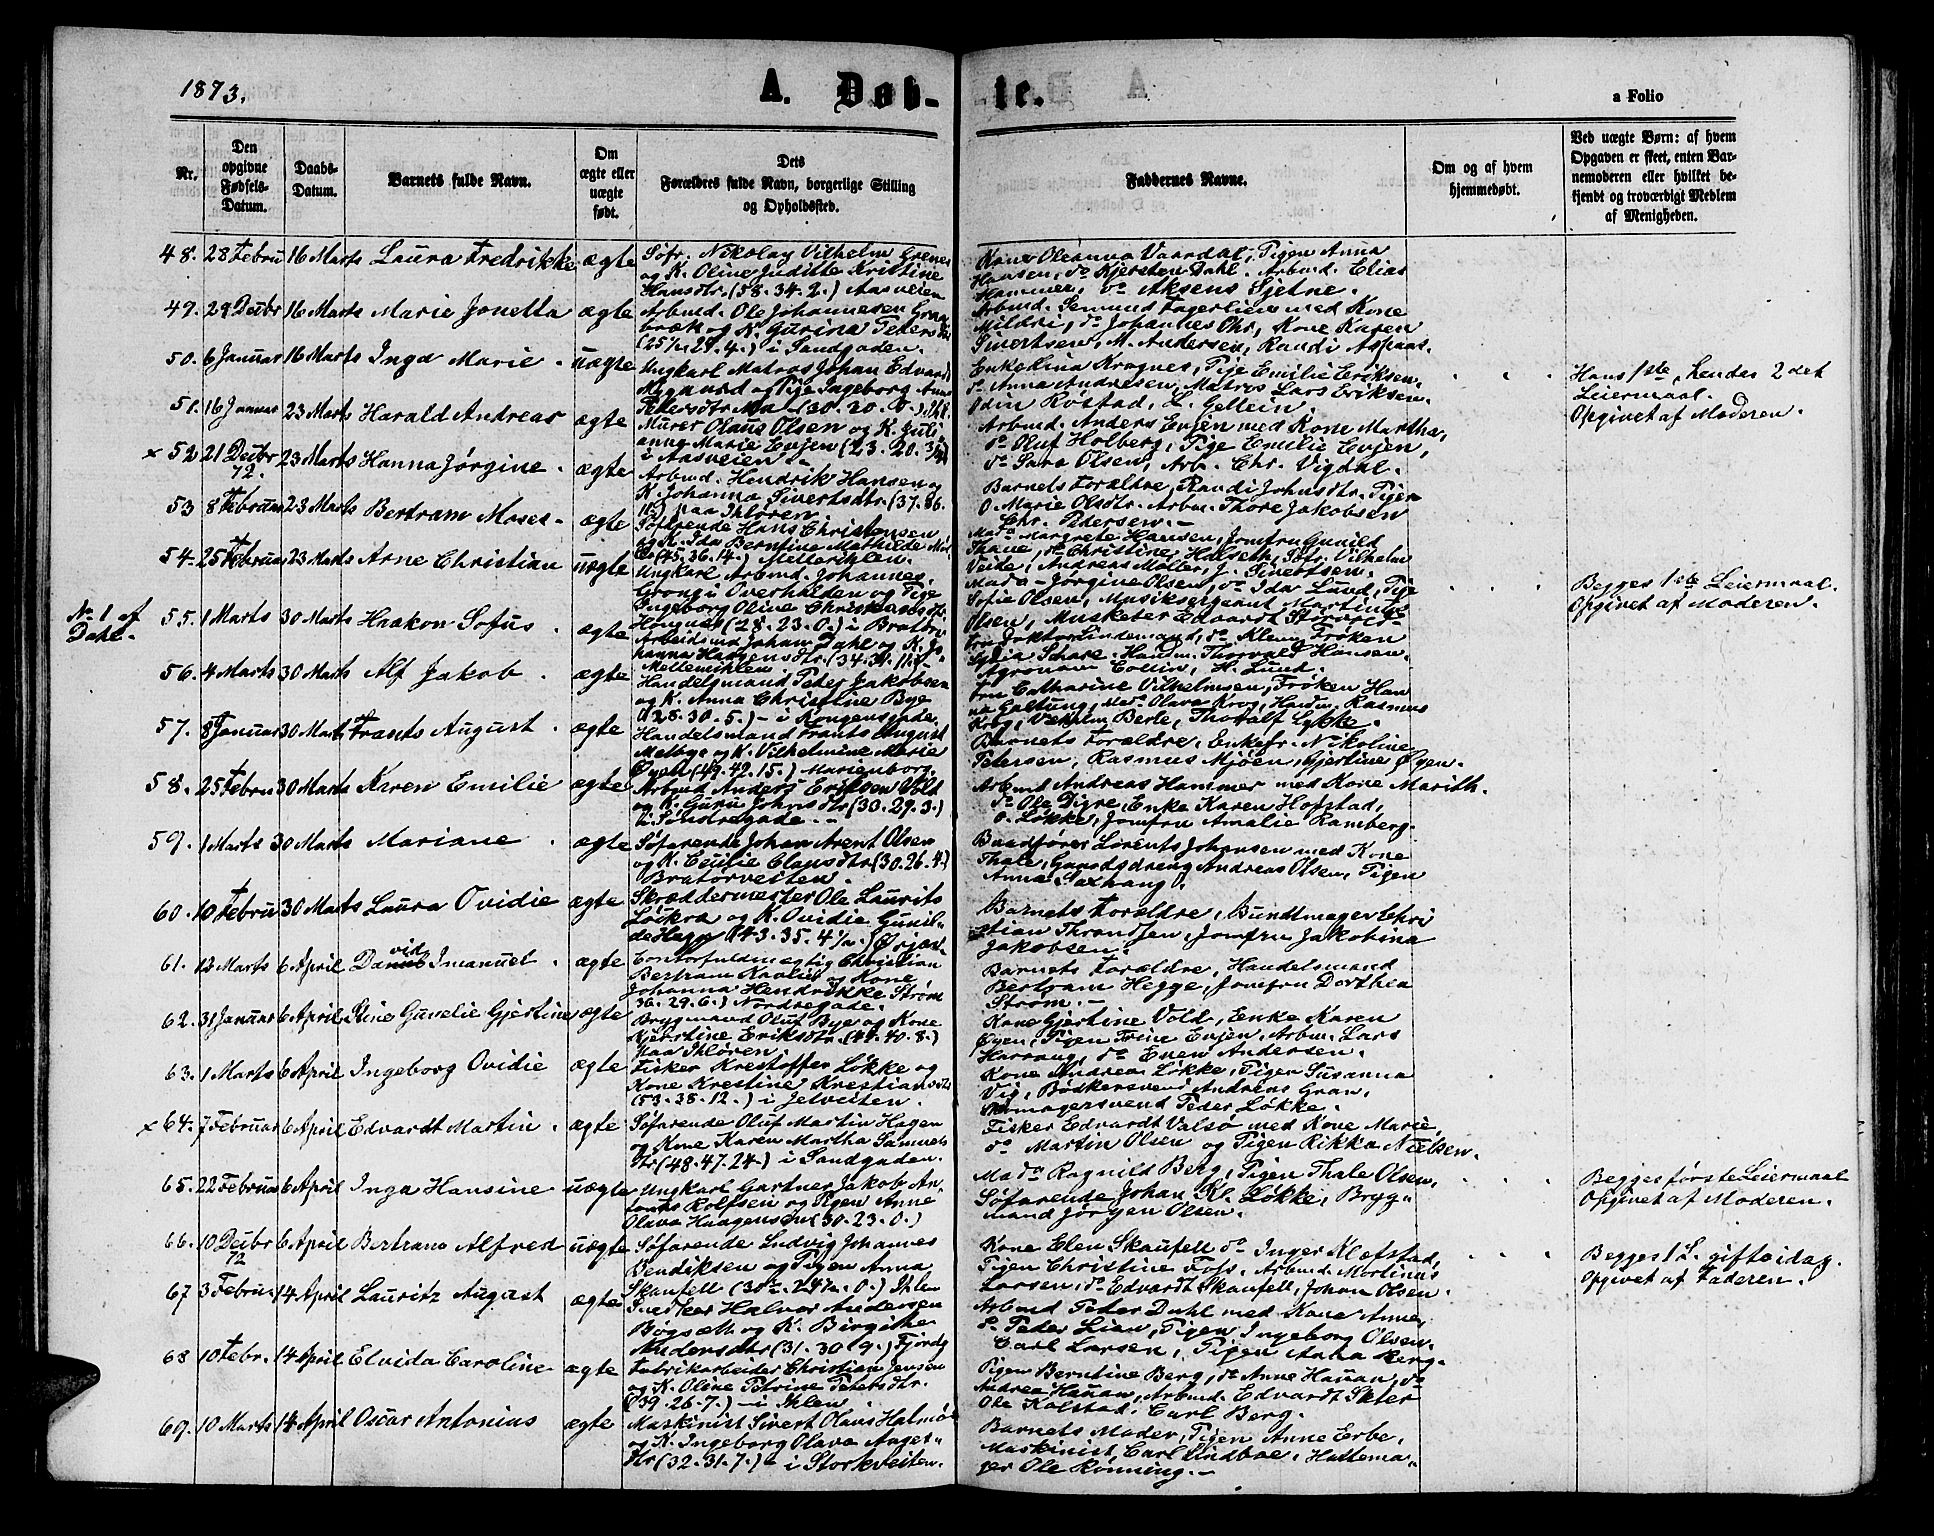 1873.
A. Døb-
te.
a Folio
Nr.
Den opgivne Fødsels-Datum.
Daabs-Datum.
Barnets fulde Navn.
Om ægte eller uægte født.
Dets Forældres fulde Navn, borgerlige Stilling og Opholdssted.
Faddernes Navne.
Om og af hvem hjemmedøbt.
Ved uægte Børn: af hvem Opgaven er skeet, enten Barnemoderen eller hvilket bekjendt og troværdigt Medlem af Menigheden.
48. 28 Febru 16 Marts Laura Fredrikke ægte
Søfr. Nikolay Vilhelm Grenes
og K. Oline Juditte Kristine
Hansdtr. (58. 34. 2.) Aasveien
Kone Oleanna Vaardal, Pigen Anna
Hansen, do Kjersten Dahl. Arbmd. Elias
Hammer, do Aksens Sjetne.
49. 29 Decbr 16 Marts Marie Jonetta ægte
Arbmd. Ole Johannesen Gran
bræk og K. Gurina Peders
i Sandgaden.
Arbmd. Semund Fagerlien med Kone
Mildri, do Johannes Ohr, Kone Karen
Sivertsen, M. Andersen, Randi Aspaas.
50. 6 Januar 16 Marts Inga Marie uægte
Ungkarl Matros Johan Edvard
Nygaard og Pige Ingeborg Anna
Petersdtr. (30. 20. 0.)
Enke Lina Kragnes, Pige Emilie Eriksen.
do Anna Andresen, Matros Lars Eriksen.
Odin Røstad, L. Gellein.
Hans 1ste, hendes 2det
Leiermaal.
Opgivet af Moderen.
51. 16 Januar 23 Marts Harald Andreas ægte
Murer Olaus Olsen og K. Juli
anna Marie Evjen (23. 20.
i Aasveien
Arbmd. Anders Evjen med Kone Martha,
do Oluf Holberg, Pige Emilie Evjen,
do Sara Olsen, Arb. Chr. Vigdal.
x 52 21 Decbr 72. 23 Marts Hanna Jørgine ægte
Arbmd. Hendrik Hansen og
K. Johanna Sivertsdtr. (37. 36.
paa Ihlören
Barnets Forældre, Randi Johnsdtr. Pigen
O. Marie Olsdtr. Arbm. Thore Jakobsen
Chr. Pedersen.
53 8 Februar 23 Marts Bertram Moses ægte
Søfarende Hans Christensen
og K. Ida Berntine Mathilde
(45. 36. 14.) Mellemiklen.
Mada Margrete Hansen, Jomfru Gunild
Thane, do Christine Halseth, Søfr. Vilhelm
Veide, Andreas Møller, J. Sivertsen.
54. 25 Februar 23 Marts Arne Christian uægte
Ungkarl Arbmd. Johannes
Grong i Overhalden og Pige
Ingeborg Oline Christiansdtr.
(28. 23. 0.) i Bratøren
Mada Jørgine Olsen, do Ida Lund, Pige
Sofie Olsen, Musiksergeant Martin
Olsen, Musketer Edvardt
Begges 1ste Leiermaal.
Opgivet af Moderen.
No 1 af
Dahl.
55. 1 Marts 30 Marts Haakon Sofus ægte
Arbeidsmd Johan Dahl og K. Jo
hanna Hansensdtr. (34.
Mellemiklen
Fru Doktor Lindemand, do Klem, Frøken
Lydia Schare. Handm. Thorvald Hansen,
Agronom Collin, H. Lund.
56. 4 Marts 30 Marts Alf Jakob ægte
Handelsmand Peter Jakobsen
og K. Anna Christine Bye
(28. 30. 5.) i Kongensgade.
Fru Catharine Vilhelmsen, Frøken Han
na Galtung, Mada Olava Krog, Handm. Rasmus
Krog, Vilhelm Berle, Thoralf Lykke.
57. 8 Januar 30 Marts Frants August ægte
Handelsmand Frants August
Melbye og K. Vilhelmine Marie
Øyen (49. 42. 15.) Marienborg.
Barnets Forældre, Enkefr. Nikoline
Petersen, Rasmus Mjøen, Gjertine Øyen.
58. 25 Febru 30 Marts Karen Emilie ægte
Arbmd Anders Eriksen Vold
og K. Guru Johnsdtr (33. 29. 3.)
i Søndregade.
Arbmd Andreas Hammer med Kone Marith.
do Ole Digre, Enke Karen Hofstad,
O. Løkke, Jomfru Amalie Ramberg.
59. 1 Marts 30 Marts Mariane ægte
Søfarende Johan Arent Olsen
og K. Cecilie Olausdtr (30. 26. 4.)
Bratørveiten.
Baadfører Lorents Johansen med Kone
Thale, Gaardsdreng Andreas Olsen, Pigen
Anna Saxhaug.
60. 10 Febru 30 Marts Laura Ovidie ægte
Skræddermester Ole Laurits
Løkra og K. Ovidie Gunil-
de Hagn (43. 35. 4½.) Ørjan.
Barnets Forældre, Bundtmager Chri
stian Throndsen, Jomfru Jakobina
Jakobsen.
61. 12 Marts 6 April David Imanuel ægte
Contorfuldmægtig Christian
Bertram Kaalie og Kone
Johanna Hendrikke Strøm
36. 29. 6.) Nordregade.
Barnets Forældre, Handelsmand
Bertram Hegge, Jomfru Dorthea
Strøm.
62. 31 Januar 6 April Stine Gunelie Gjertine ægte
Brygmand Oluf Bye og Kone
Kjerstine Eriksdtr. (44. 40. 8.)
paa Ihlören.
Kone Gjertine Vold, Enke Karen
Øyen, Pigen Trine Evjen, Arbm. Lars
Harraug, do Even Andersen.
63. 1 Marts 6 April Ingeborg Ovidie ægte
Fisker Krestoffer Løkke og
Kone Krestine Krestiansdtr
(53. 38. 12.) i Jelveiten.
Kone Andrea Løkke, Pigen Susanna
Vig, Bødkersvend Andreas Gran,
Skomagersvend Peder Løkke.
x 64. 7 Februar 6 April Edvardt Martin ægte
Søfarende Oluf Martin Hagen
og Kone Karen Martha Samuels
dtr (48. 47. 24.) i Sandgaden.
Fisker Edvardt Valsø med Kone Marie,
do Martin Olsen og Pigen Rikka Nielsen.
65. 22 Februar 6 April Inga Hansine uægte
Ungkarl Gartner Jakob An-
tonts Rolfsen og Pigen Anne
Olava Haagensdtr (30. 23. 0.)
Mada Ragnild Berg, Pigen Thale Olsen,
Søfarende Johan Kl. Løkke, Bryg-
mand Jørgen Olsen.
Begges første Leiermaal
Opgivet af Moderen.
66. 10 Decbr 72 6 April Bertram Alfred uægte
Søfarende Ludvig Johannes
Bendiksen og Pigen Anna
Skaufell Ihlen
Kone Elen Skaufell do Inger Klefstad,
Pigen Christine Foss. Arbmd. Martinus
Larsen, do Edvardt Skaufell, Johan Olsen.
Begges 1 L. gifte idag.
Opgivet af Faderen.
67 3 Februar 14 April Lauritz August ægte
Snedker Halvor Andersen
Bøgsæth og K. Birgithe
Andersdtr (31. 30. 9.) Fjordg
Arbmd Peder Dahl med Kone Anne,
do Peder Lien, Pigen Ingeborg Olsen.
Carl Larsen, Pigen Anna Berg.
68 10 Febr. 14 April Elvida Caroline ægte
Fabrikarbeider Christian Jensen
og K. Oline Petrine Petersdtr.
(39. 26. 7.) i Ihlen.
Pigen Berntine Berg, do Anne Hauan, do
Andrea Hauan, Arbmd. Edvardt Sæter
Ole Kolstad, Carl Berg.
69. 10 Marts 14 April Oscar Antonius ægte
Maskinist Sivert Olaus Halmø
og K. Ingeborg Olava Auges-
dtr (32. 31. 7.) i Storkveiten.
Barnets Moder, Pigen Anne Erbe,
Maskinist Carl Lindboe, Hattema-
ger Ole Rønning.